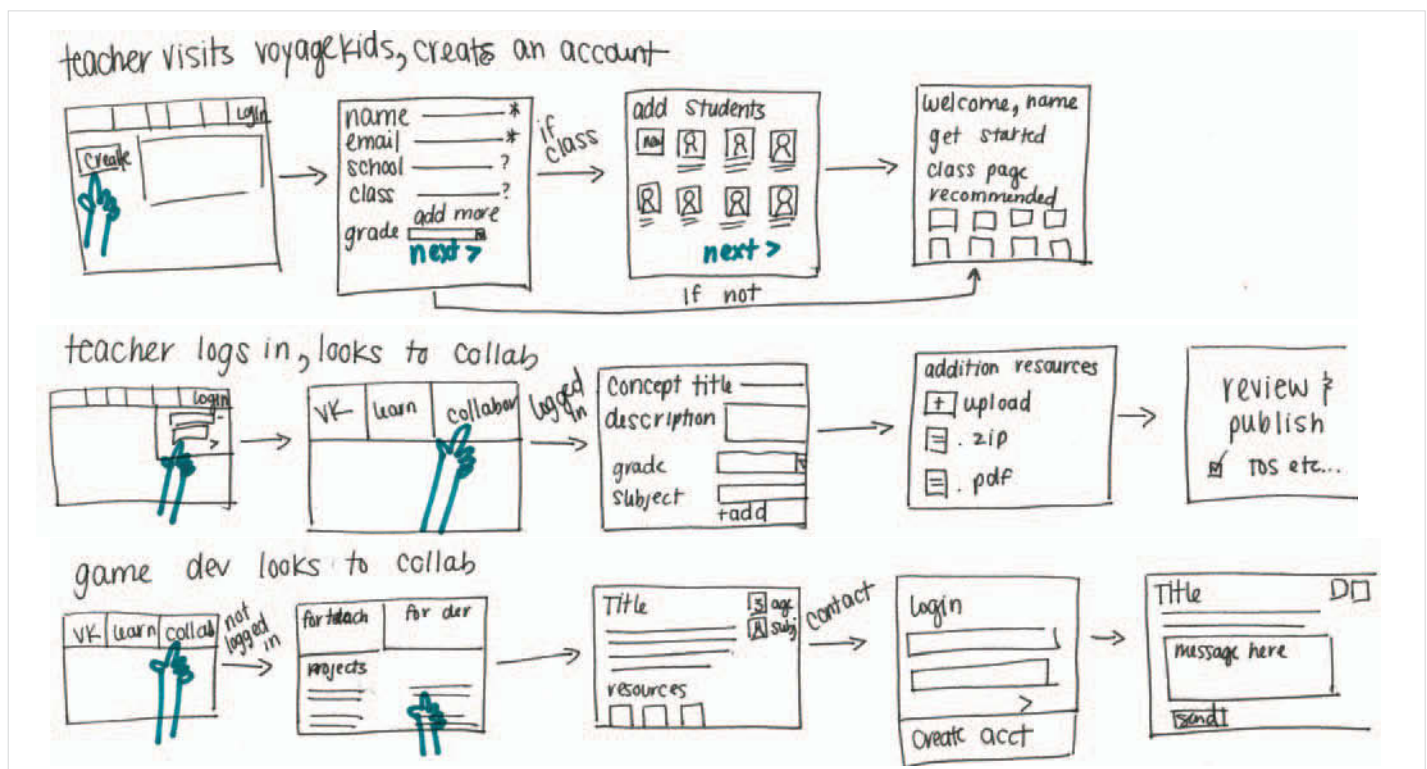 teacher visits voyagekids, creats an account
Login
Create
name *
email *
school ?
class ?
add more
grade
next >
if class
add students
new
next >
If not
welcome, name
get started
class page
recommended
teacher logs in, looks to collab
Login
>
VK learn collabor
logged in
Concept title
description
grade
subject
+add
addition resources
+ upload
.zip
.pdf
review &
publish
TOS etc...
game dev looks to collab
VK learn collab
not
logged
in
for teach for dev
projects
Title
age
subj
resources
contact
Login
>
Create acct
Title
message here
send